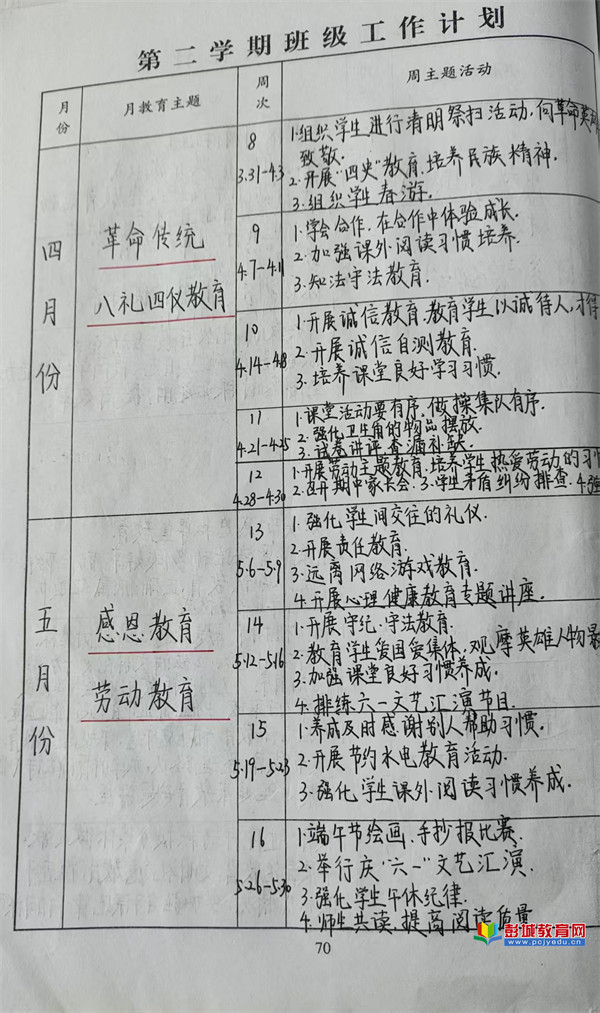 第二学期班级工作计划
月份 月教育主题 周次 周主题活动
四月份
革命传统
八礼四仪教育
8
3.31-4.3
1.组织学生进行清明祭扫活动,向革命英
致敬.
2.开展“四史”教育.培养民族精神.
3.组织学生春游.
9
4.7-4.11
1.学会合作,在合作中体验成长.
2.加强课外阅读习惯培养.
3.知法守法教育.
10
4.14-4.18
1.开展诚信教育.教育学生以诚待人,才得
2.开展诚信自测教育.
3.培养课堂良好学习习惯.
11
4.21-4.25
1.课堂活动要有序,做操集队有序.
2.强化卫生角的物品摆放.
3.试卷讲评查漏补缺.
12
4.28-4.30
1.开展劳动主题教育.培养学生热爱劳动的习
2.召开期中家长会.3.学生矛盾纠纷排查.4.强
五月份
感恩教育
劳动教育
13
5.6-5.9
1.强化学生间交往的礼仪.
2.开展责任教育.
3.远离网络游戏教育.
4.开展心理健康教育专题讲座.
14
5.12-5.16
1.开展守纪、守法教育.
2.教育学生爱国爱集体,观摩英雄人物
3.加强课堂良好习惯养成.
4.排练六一文艺汇演节目.
15
5.19-5.23
1.养成及时感谢别人帮助习惯.
2.开展节约水电教育活动.
3.强化学生课外阅读习惯养成.
16
5.26-5.30
1.端午节绘画、手抄报比赛.
2.举行庆“六一”文艺汇演.
3.强化学生午休纪律.
4.师生共读,提高阅读质量.
70
彭城教育网
www.pcjyedu.cn